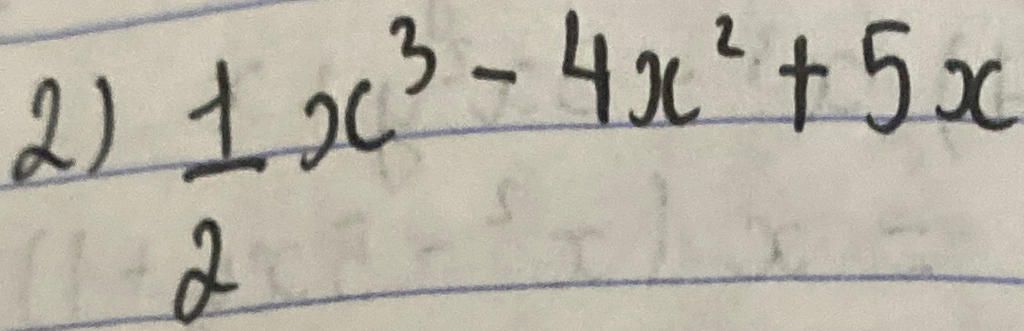 2) 1/2 x³ - 4x² + 5x